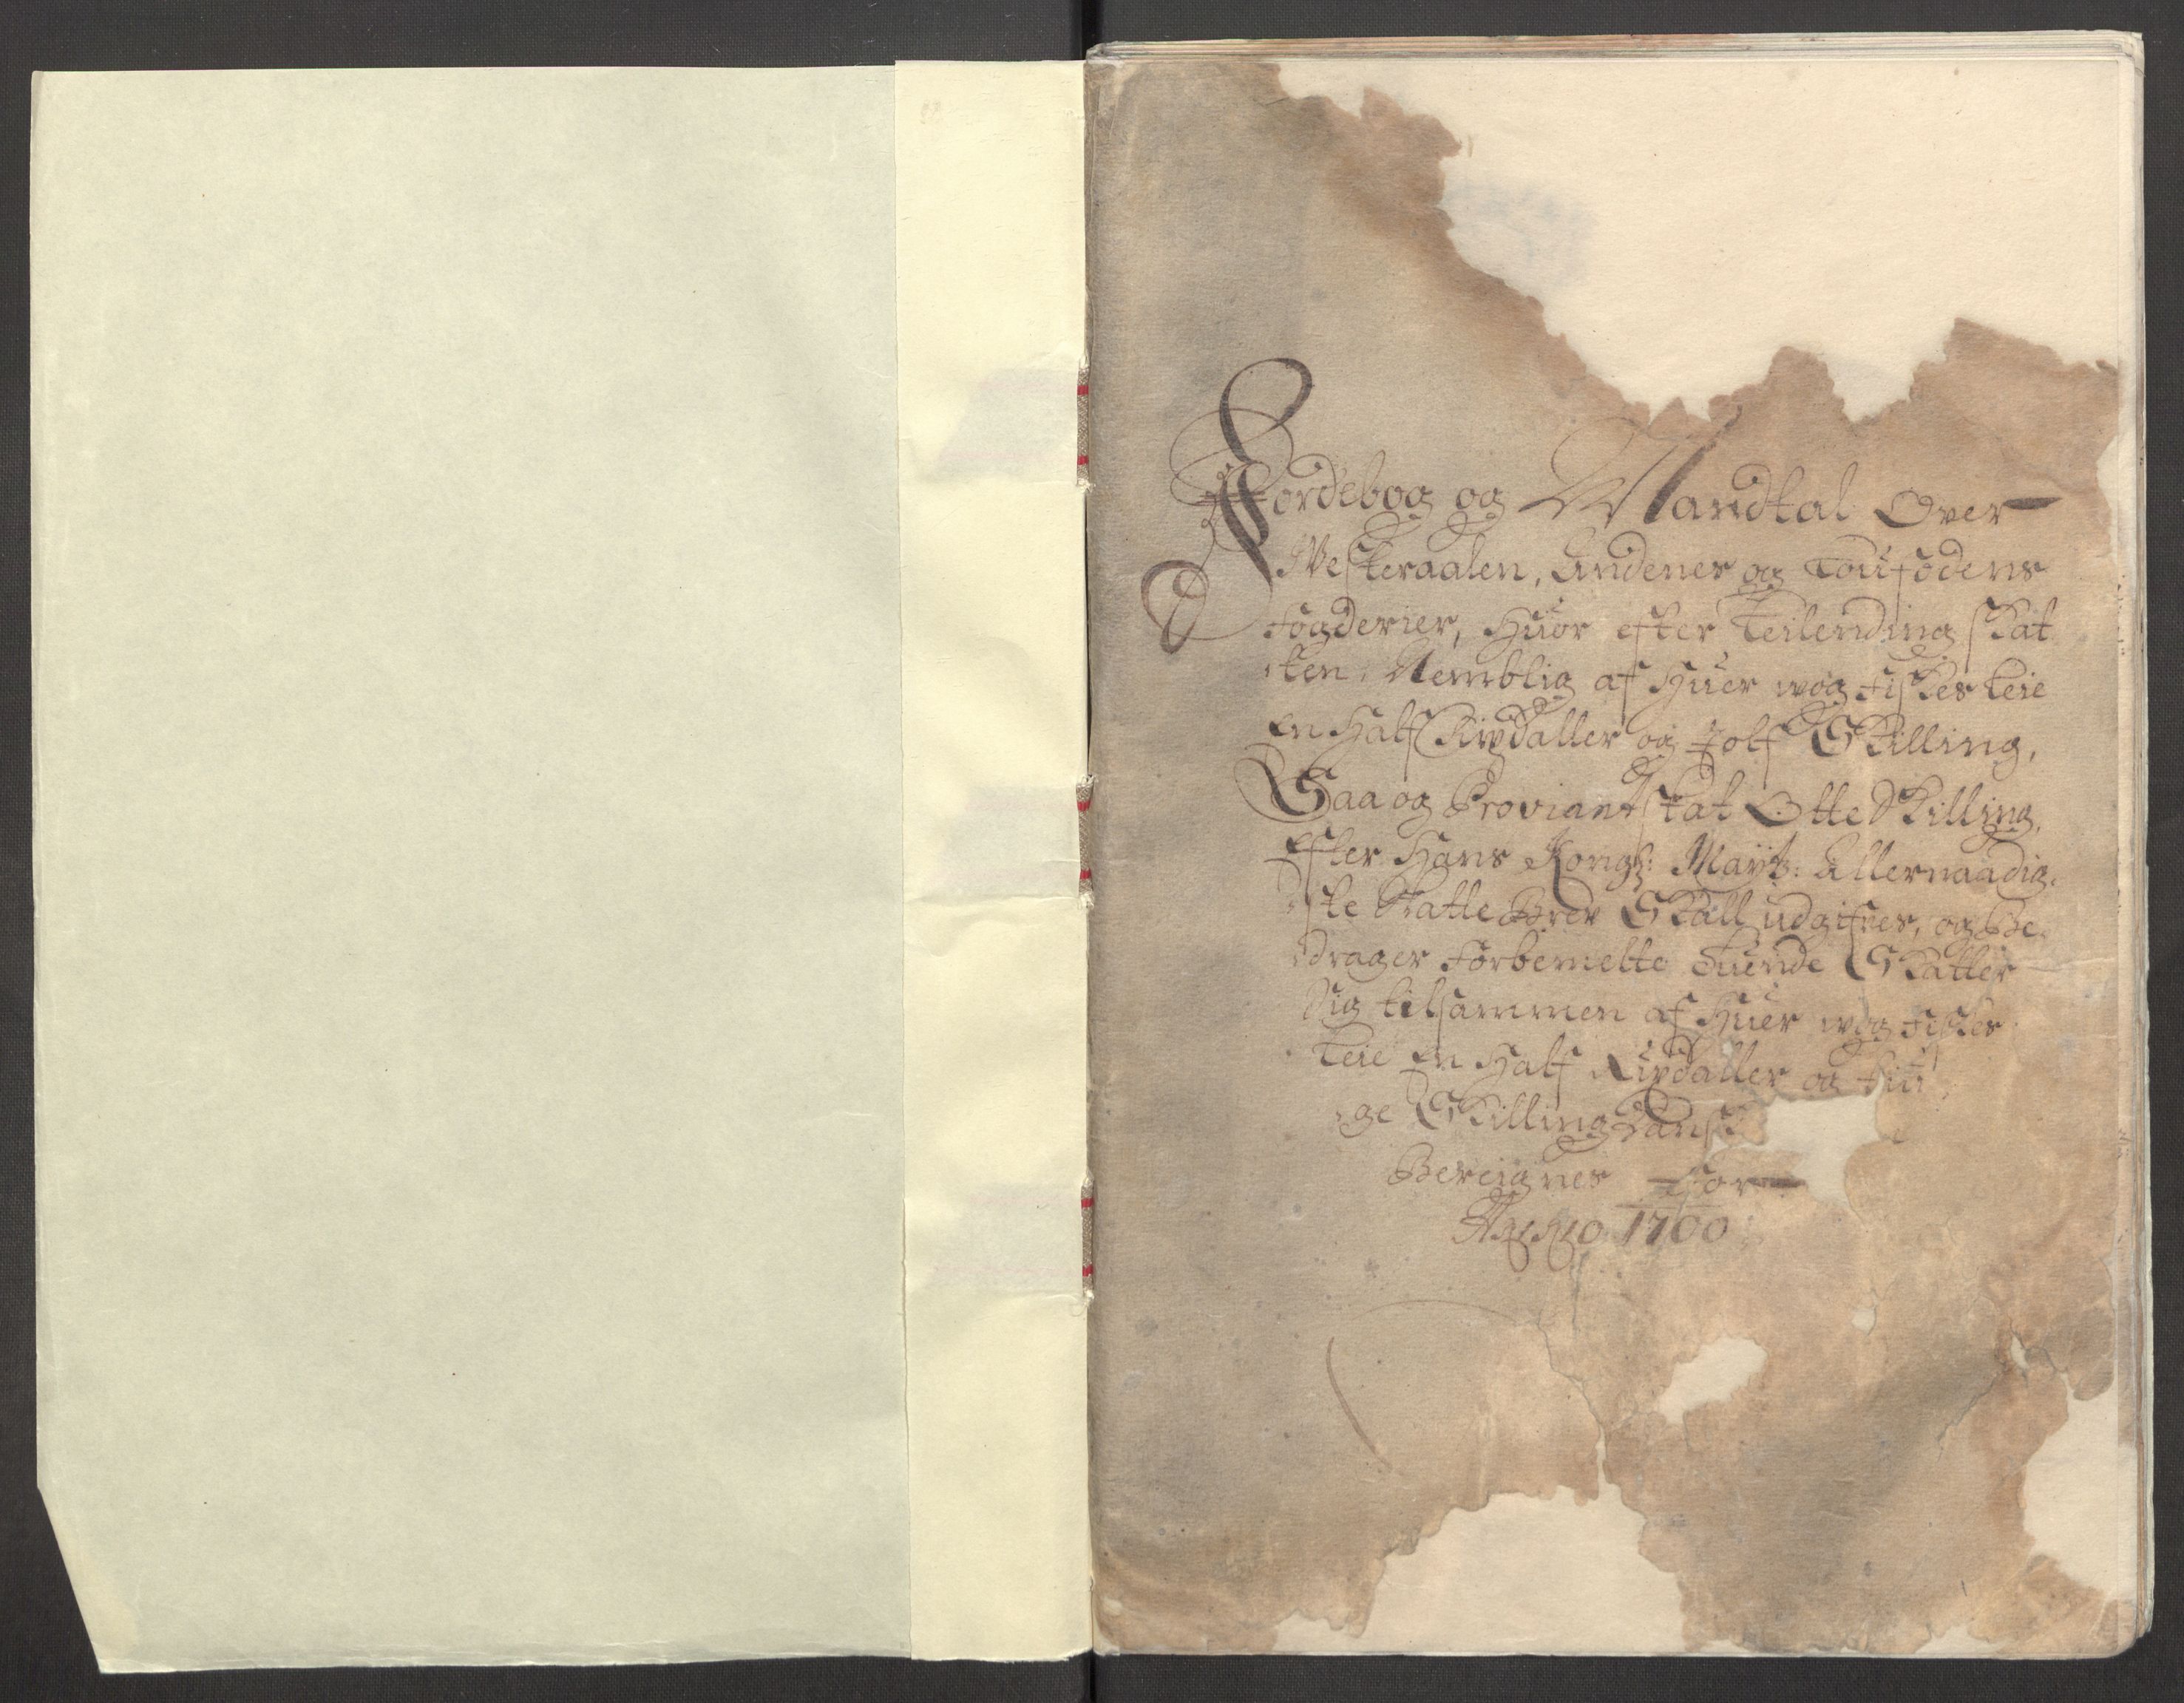 Jordebog og Mandtal Over
Westeraalen, Andenes og Loufodens
fogderier, Huor efter Leilending skat
ten, Nemblig af Huer wog fiskes Leie
en Half Rixdaller og Tolf Skilling,
Saa og Proviant skat Otte Skilling,
efter Hans Kongl: Mayts: Allernaadig,
ste Skatte Brev Skall udgifves, og Be,
drager forbemelte Tuende Skatter
Sig tilsammen af Huer wog fiskes
Leie en Half Rixdaller og tiu,
ge Skilling Dansk
Bereignes for
Anno 1700